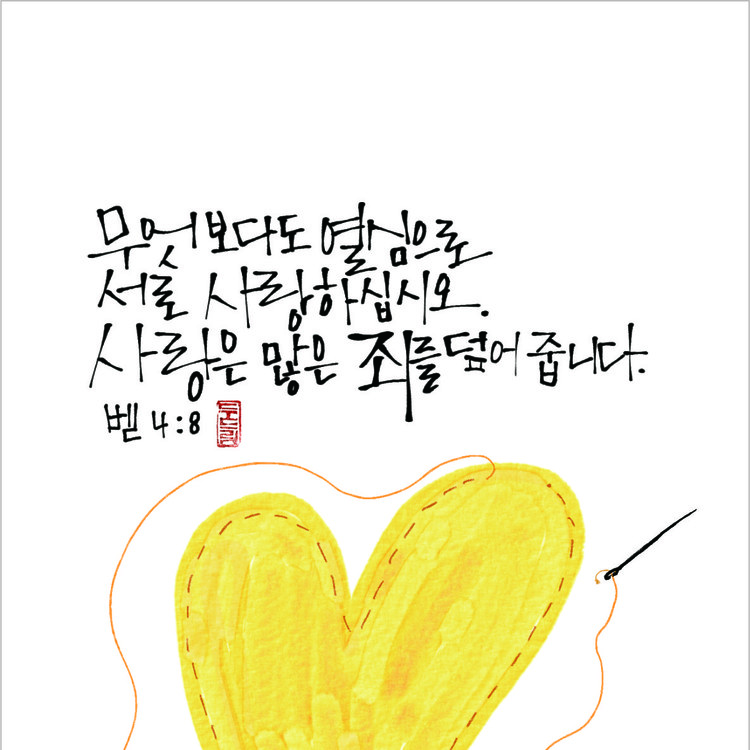 무엇보다도 열심으로
서로 사랑하십시오.
사랑은 많은 죄를 덮어 줍니다.
벧 4:8